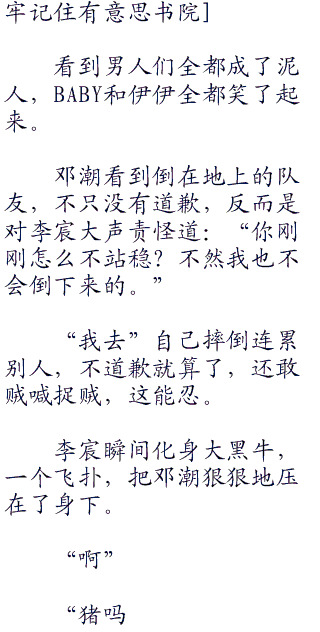 牢记住有意思书院]
看到男人们全都成了泥
人，BABY和伊伊全都笑了起
来。
邓潮看到倒在地上的队
友，不只没有道歉，反而是
对李宸大声责怪道：“你刚
刚怎么不站稳？不然我也不
会倒下来的。”
“我去”自己摔倒连累
别人，不道歉就算了，还敢
贼喊捉贼，这能忍。
李宸瞬间化身大黑牛，
一个飞扑，把邓潮狠狠地压
在了身下。
“啊”
“猪吗